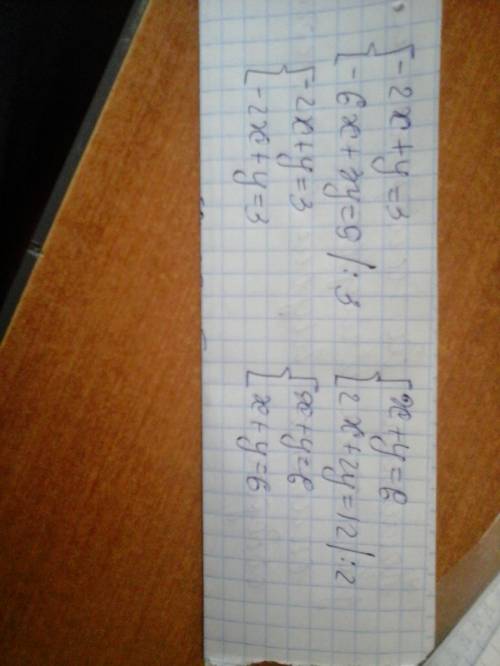 {-2x+y=3
{-6x+3y=9 |:3
{-2x+y=3
{-2x+y=3
{x+y=6
{2x+2y=12 |:2
{x+y=6
{x+y=6